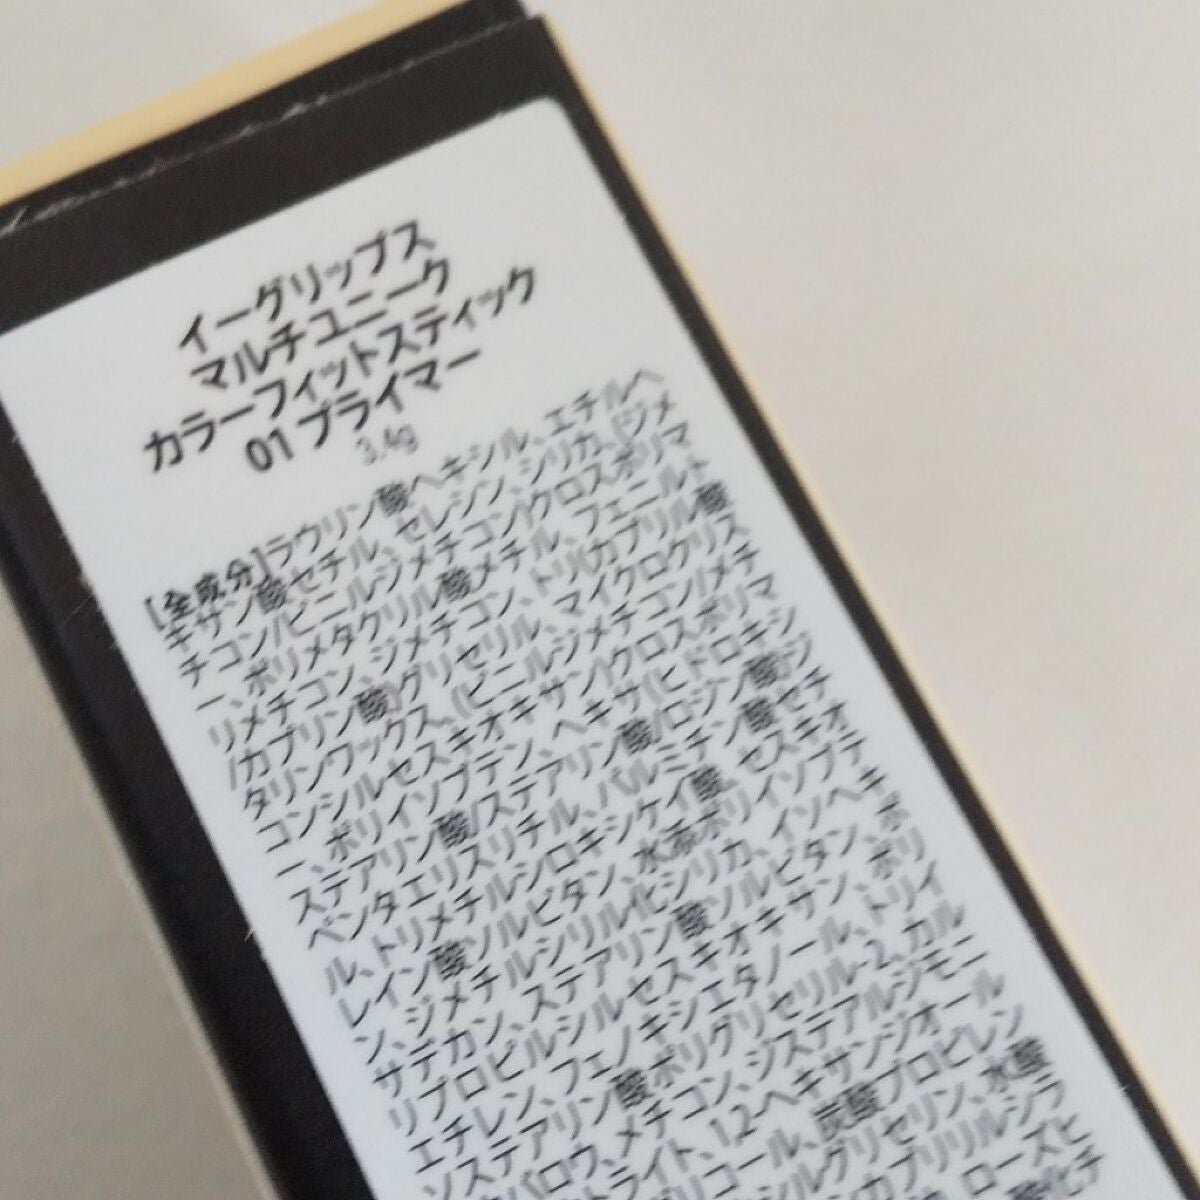 イーグリップス
マルチユニーク
カラーフィットスティック
01 プライマー
3.4g
[全成分]ラウリン酸ヘキシル、エチルヘ
キサン酸セチル、セレシン、シリカ、(ジメ
チコン/ビニルジメチコン)クロスポリマ
ー、ポリメタクリル酸メチル、フェニルト
リメチコン、ジメチコン、トリ(カプリル酸
/カプリン酸)グリセリル、マイクロクリス
タリンワックス、(ビニルジメチコン/メチ
コンシルセスキオキサン)クロスポリマ
ー、ポリイソブテン、ヘキサ(ヒドロキシ
ステアリン酸/ステアリン酸/ロジン酸)ジ
ペンタエリスリチル、パルミチン酸セチ
ル、トリメチルシロキシケイ酸、セスキオ
レイン酸ソルビタン、水添ポリイソブテ
ン、ジメチルシリル化シリカ、イソヘキ
サデカン、ステアリン酸ソルビタン、ポ
リプロピルシルセスキオキサン、ポリ
エチレン、フェノキシエタノール、トリイ
ソステアリン酸ポリグリセリル-2、カル
バロウ、メチコン、ジステアルジモニ
トライト、1,2-ヘキサンジオール
グリコール、炭酸プロピレン
シルグリセリン、水酸
カプリリルシラ
ローズヒ
酸化チ